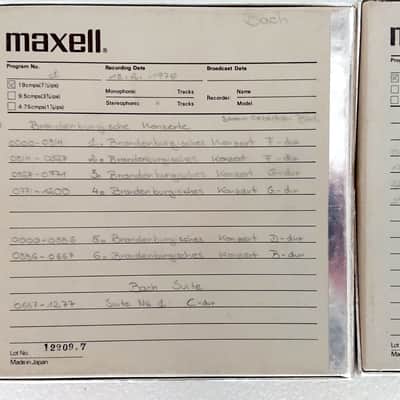 Bach
maxell®
Program No. 1 Recording Date 1976 Broadcast Date
☒ 19cmps(7½ips)
☐ 9.5cmps(3¾ips) Monophonic Tracks Recorder: Name
☐ 4.75cmps(1⅞ips) Stereophonic Tracks Model
Brandenburgische Konzerte Johann Sebastian Bach
0000-0314 1. Brandenburgisches Konzert F-dur
0314-0567 2. Brandenburgisches Konzert F-dur
0567-0771 3. Brandenburgisches Konzert G-dur
0771-1200 4. Brandenburgisches Konzert G-dur
0000-0356 5. Brandenburgisches Konzert D-dur
0356-0667 6. Brandenburgisches Konzert B-dur
Bach Suite
0667-1277 Suite No 1 C-dur
Lot No. 12909.7
Made in Japan
m
Program
Lot No.
Made in J